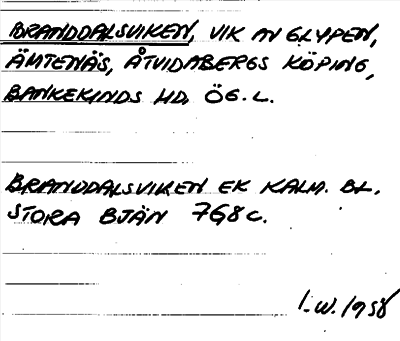 BRANDDALSVIKEN, VIK AV GLYPEN,
ÄMTENÄS, ÅTVIDABERGS KÖPING,
BANKEKINDS HD, ÖG. L.
BRANDDALSVIKEN EK KALM. BL.
STORA BJÄN 7G8c.
I.W. 1958